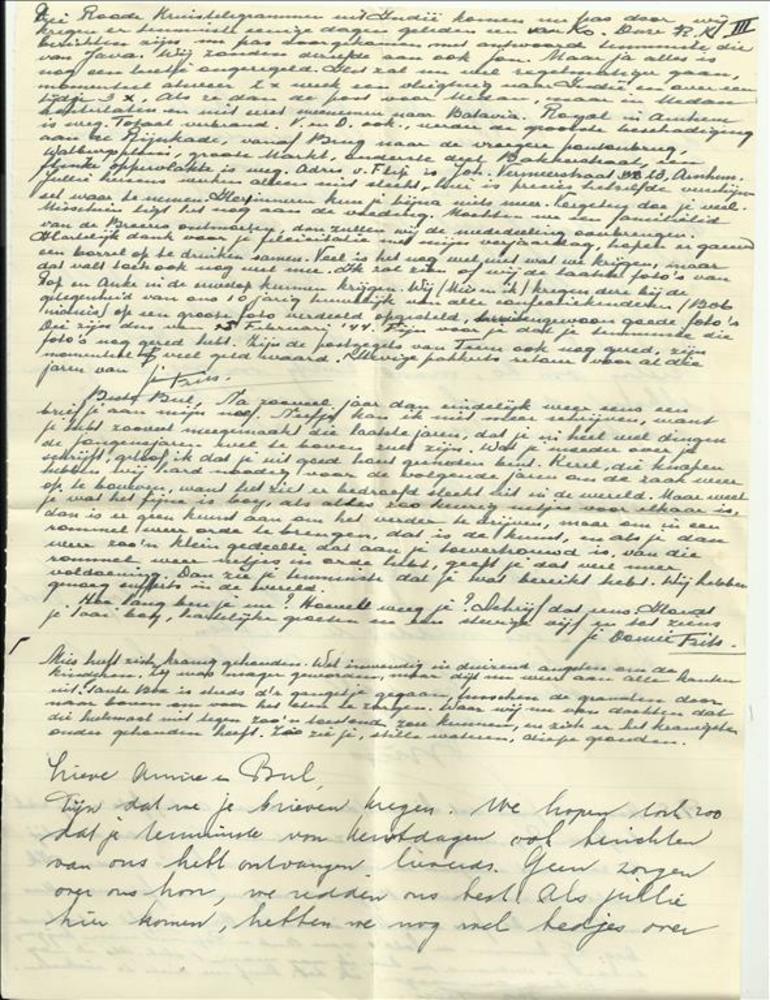 III
Die Roode Kruistelegrammen uit Indië komen nu pas door, wij
kregen er tenminste eenige dagen geleden een van Ko. Onze R.K.
berichten zijn nu pas doorgekomen met antwoord tenminste die
van Java. Wij zonden dezelfde aan ook Jan. Maar ja alles is
nog een beetje ongeregeld. Het zal nu wel regelmatiger gaan,
momenteel alweer 2 x week een vliegtuig naar Indië en over een
tijdje 3 x, als ze dan de post voor Medan, maar in Medan
en niet eerst meenemen naar Batavia. Royal in Arnhem
is weg. Totaal verbrand. V. en D. ook, verder de grootste beschadiging
aan de Rijnkade, vanaf Brug naar de vroegere pontonbrug,
Walburgplein, groote Markt, onderste deel Bakkerstraat, een
flinke oppervlakte is weg. Adres v. Flip is Joh. Vermeerstraat 13, Arnhem.
Jullie hersens werken alleen niet slecht, hier is precies hetzelfde verschijn-
sel waar te nemen. Herinneren kun je bijna niets meer. Vergeten doe je veel.
Misschien ligt het nog aan de voeding. Mochten we een familielid
van de Breeres ontmoeten, dan zullen wij de mededeeling overbrengen.
Hartelijk dank voor je felicitatie met mijn verjaardag, hopen er gauw
een borrel op te drinken samen. Veel is het nog wel niet wat we krijgen, maar
dat valt toch ook nog wel mee. Ik zal zien of wij de laatste foto's van
Pop en Anke in de envelop kunnen krijgen. Wij (Mies en ik) kregen deze bij de
gelegenheid van ons 10 jarig huwelijk van alle confectiekinderen (Bob
) op een groote foto verdeeld opgesteld, buitengewoon goede foto's
Die zijn dus van 25 Februari '44. Fijn voor je dat je tenminste die
foto's nog gered hebt. Zijn de postzegels van Teun ook nog gered, zijn
momenteel veel geld waard. Stevige pakkerts retour voor al die
jaren van je Frits.
Beste Bul, Na zooveel jaar dan eindelijk weer eens een
briefje aan mijn neef. Neefje kan ik niet meer schrijven, want
je hebt zooveel meegemaakt die laatste jaren, dat je nu heel veel dingen
de jongensjaren wel te boven zult zijn. Wat je moeder over je
schrijft, geloof ik dat je uit goed hout gesneden bent. Kerel, die knapen
hebben wij hard noodig voor de volgende jaren om de zaak weer
op te bouwen, want het ziet er bedroefd slecht uit in de wereld. Maar weet
je wat het fijne is boy, als alles zoo keurig netjes voor elkaar is,
dan is er geen kunst aan om het verder te drijven, maar om in een
rommel weer orde te brengen, dat is de kunst, en als je dan
weer zoo'n klein gedeelte dat aan je toevertrouwd is, van die
rommel weer netjes in orde hebt, geeft je dat veel meer
voldoening. Dan zie je tenminste dat je wat bereikt hebt. Wij hebben
genoeg in de wereld.
Hoe lang ben je nu? Hoeveel weeg je? Schrijf dat eens. Houd
je taai boy, hartelijke groeten en een stevige vijf en tot ziens
je Oome Frits.
Mies heeft zich kranig gehouden. Wel inwendig in duizend angsten om de
kinderen. Zij was mager geworden, maar dijt nu weer aan alle kanten
uit. Tante is steeds d'r gangetje gegaan, tusschen de granaten door
naar boven om voor het eten te zorgen. Waar wij nu van dachten dat
die helemaal niet tegen zoo'n toestand zou kunnen, en zich er het kranigste
onder gehouden heeft. Zoo zie je, stille wateren, diepe gronden.
Lieve Annie en Bul,
Fijn dat we je brieven kregen. We hopen toch zoo
dat je tenminste van Kerstdagen ook berichten
van ons hebt ontvangen lieverds. Geen zorgen
over ons hoor, we redden ons best! Als jullie
hier komen, hebben we nog wel bedjes over